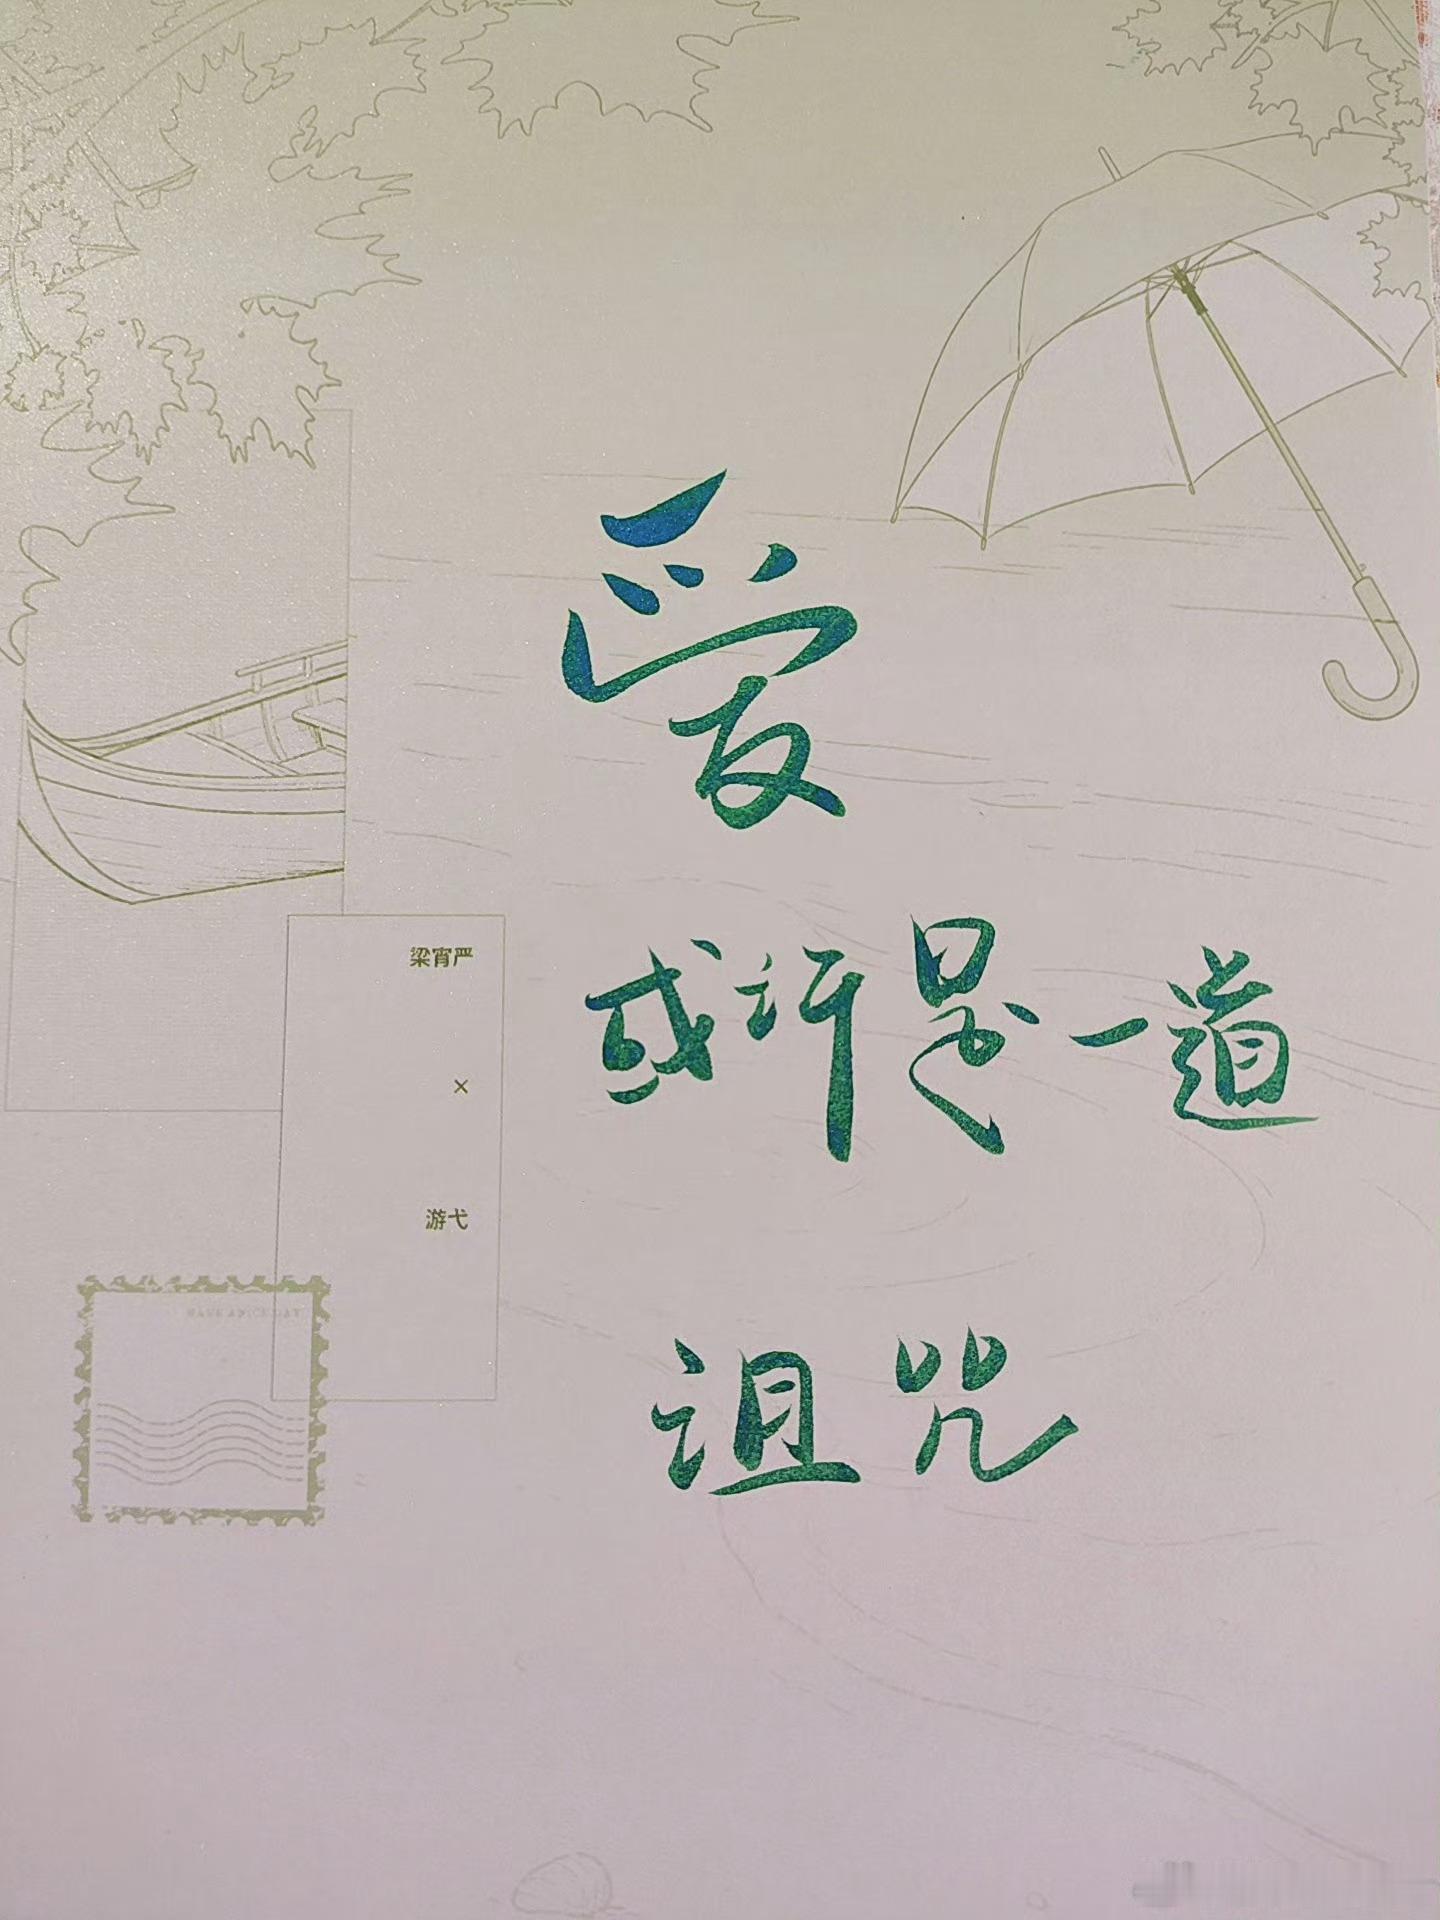 爱
或许是一道
诅咒
梁宵严
×
游弋